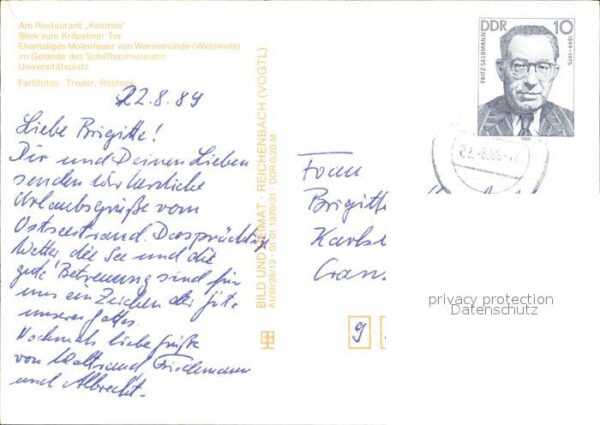 Am Restaurant „Kosmos"
Blick zum Kröpeliner Tor
Ehemaliges Molenfeuer von Warnemünde (Westmole)
im Gelände des Schiffbaumuseums
Universitätsplatz
Farbfotos: Treder, Rostock
22.8.89
Liebe Brigitte!
Dir und Deinen Lieben
senden wir herzliche
Urlaubsgrüße vom
Ostseestrand. Das prächtige
Wetter, die See und die
gute Betreuung sind für
uns ein Zeichen der Güte
unseres Gottes.
Nochmals liebe Grüße
von Waltraud, Friedemann
und Albrecht.
BILD UND HEIMAT · REICHENBACH (VOGTL)
A1/III/26/13 01 01 1370/31 DDR 0,20 M
DDR 10
FRITZ SELBMANN
1899–1975
1989
Frau
Brigitte
Karls
Cran
9
privacy protection
Datenschutz